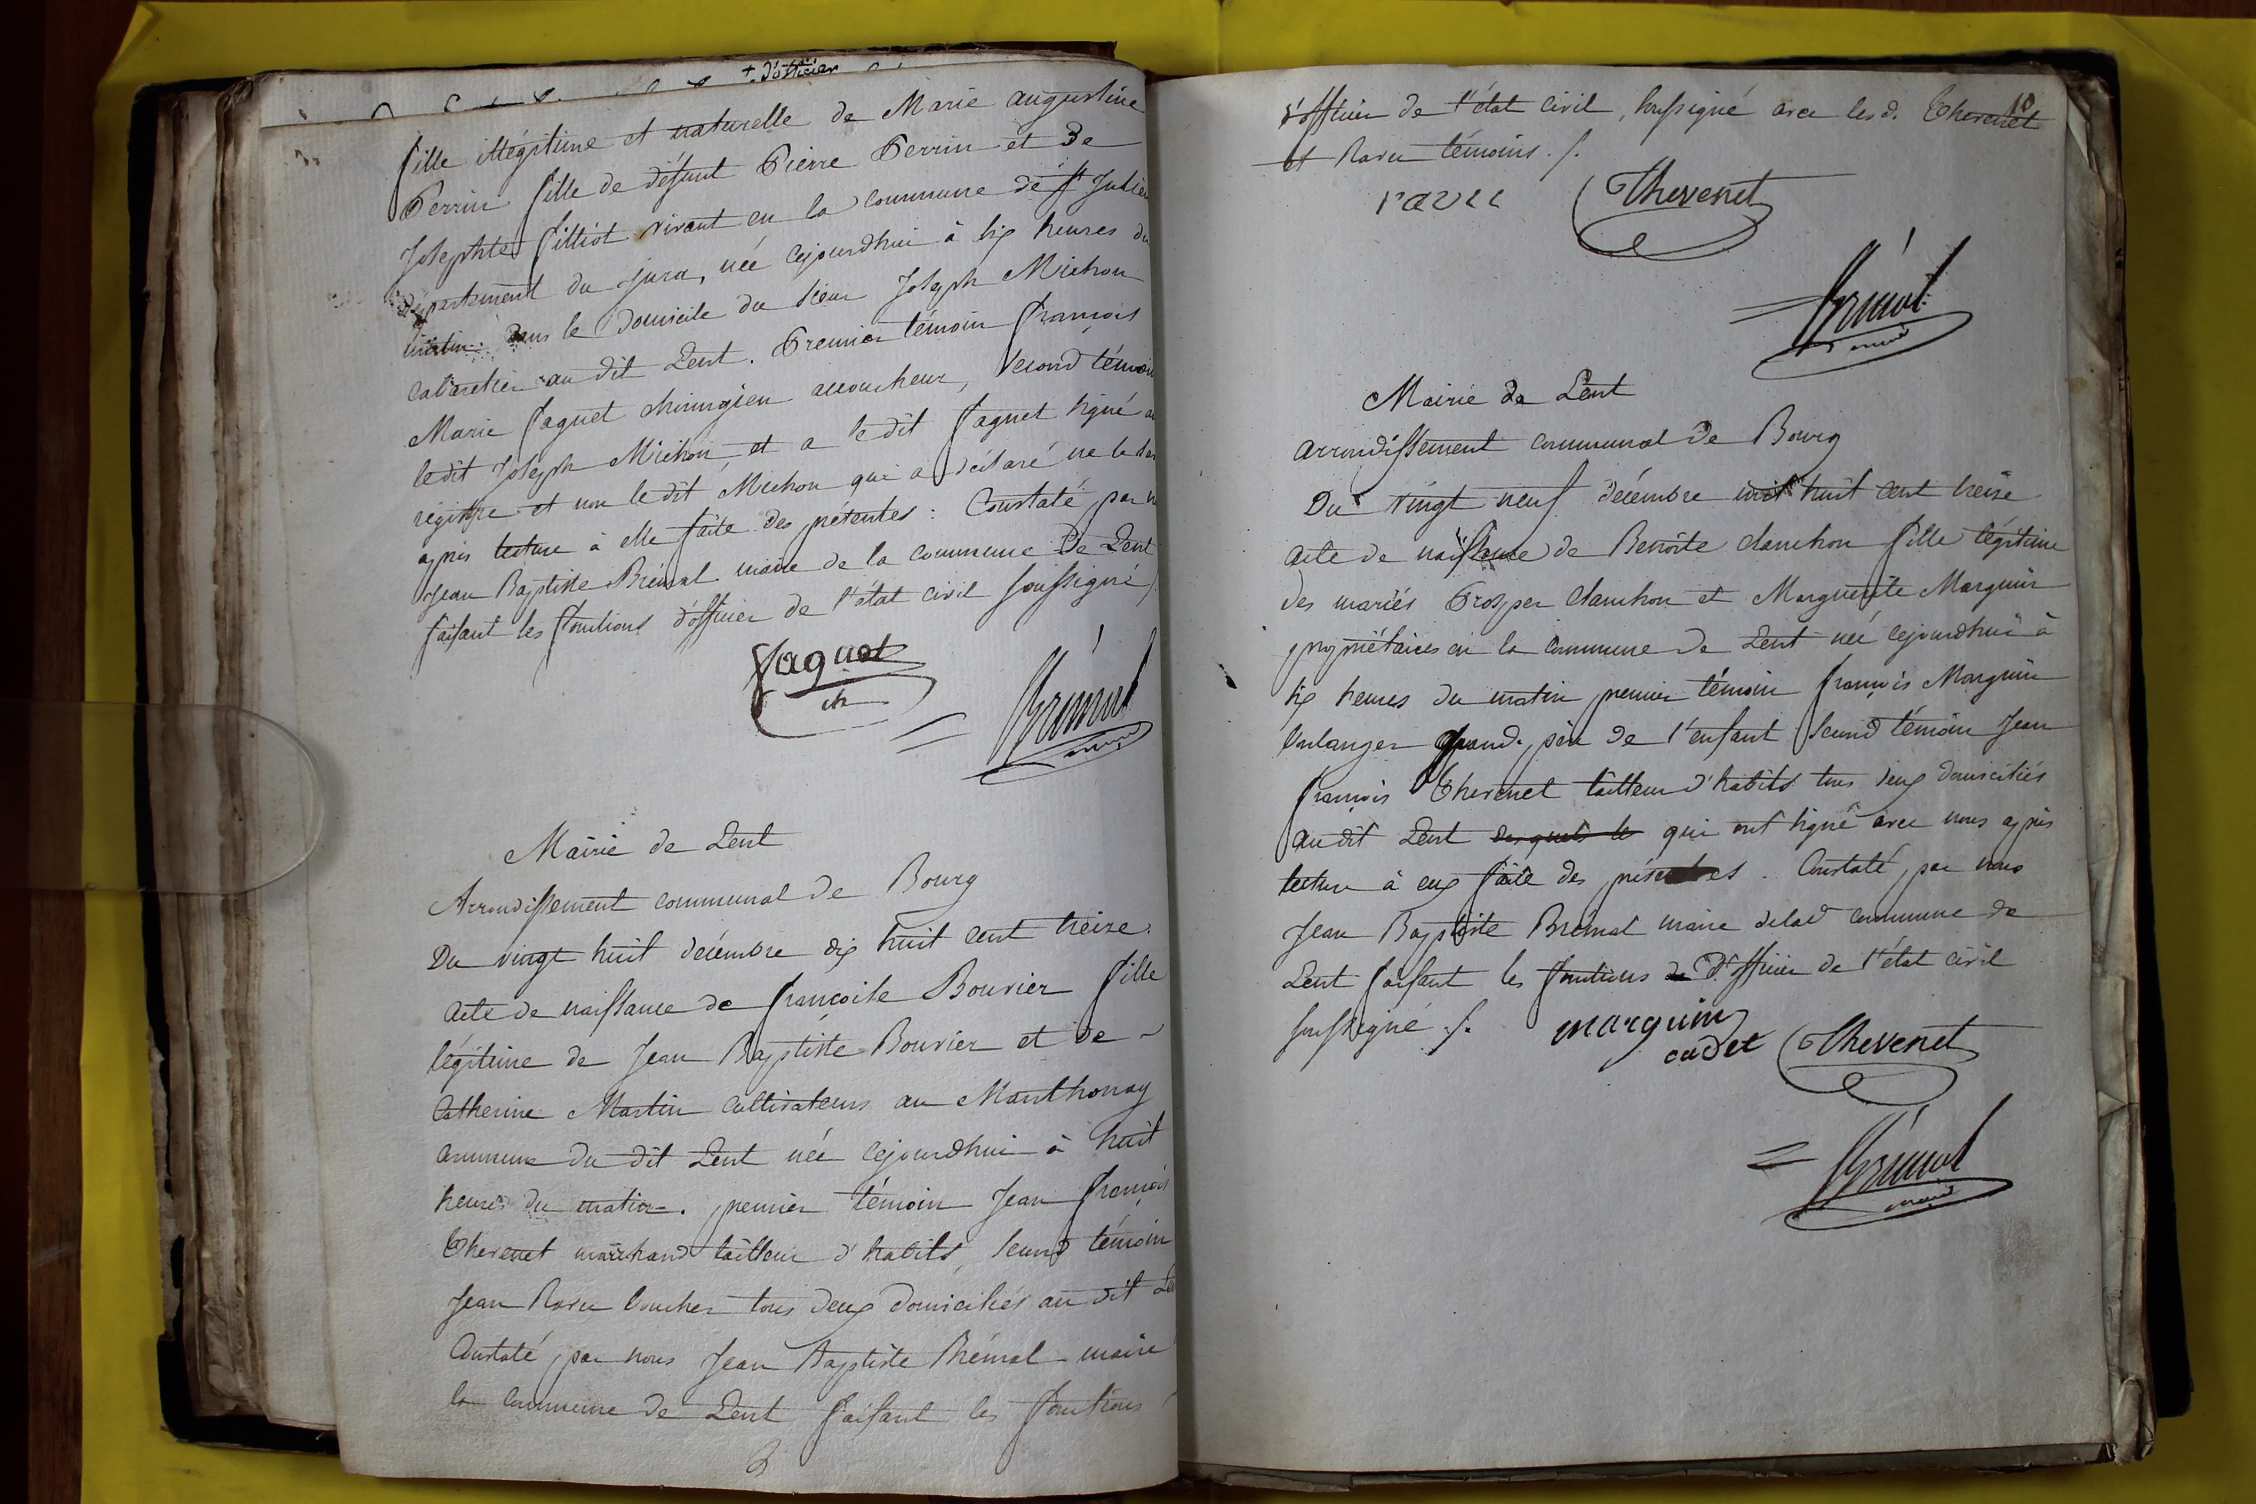 + d'officier
fille illégitime et naturelle de Marie augustine
Perrin fille de défunt Pierre Perrin et De
Josephte filliot vivant en la commune de St Julien
département du jura, née cejourdhui à six heures du
matin dans le Domicile du sieur Joseph Michon
Cabaretier au dit Lent. Premier témoin françois
Marie faguet chirurgien accoucheur, second témoin
ledit Joseph Michon et a le dit faguet signé au
régistre et non le dit Michon qui a déclaré ne le
après lecture à elle faite des présentes : Constaté par
Jean Baptiste Brémal maire de la commune De Lent
faisant les fonctions d'officier de l'état civil soussigné
faguet
ch
Brémal
maire
Mairie de Lent
Arrondissement communal de Bourg
Du vingt huit décembre dix huit cent treize.
acte de naissance de françoise Bouvier fille
légitime de Jean Baptiste Bouvier et de
Catherine Martin cultivateurs au Manthonay
commune du dit Lent née cejourdhui à huit
heures du matin. premier témoin Jean françois
Thevenet marchand tailleur d'habits, second témoin
Jean Ravu boucher tous deux domiciliés au dit
Constaté par nous Jean Baptiste Brémal maire
la commune de Lent faisant les fonctions
10
d'officier de l'état civil, soussigné avec lesd. Thevenet
et Ravu témoins ./.
ravu Thevenet
Brémal
maire
Mairie de Lent
arrondissement communal de Bourg
Du vingt neuf décembre huit cent treize
acte de naissance de Benoite clanchon fille légitime
des mariés Prosper clanchon et Marguerite Marguin
propriétaires en la commune de Lent née cejourdhui à
six heures du matin premier témoin françois Marguin
boulanger grand père de l'enfant second témoin Jean
françois Thevenet tailleur d'habits tous deux domiciliés
au dit Lent desquels le qui ont signé avec nous après
lecture à eux faite des présentes. Constaté par nous
Jean Baptiste Brémal maire delad commune de
Lent faisant les fonctions de D'officier de l'état civil
soussigné ./. marguin
cadet Thevenet
Brémal
maire